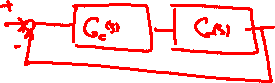 +
Gc(s) G(s)
-